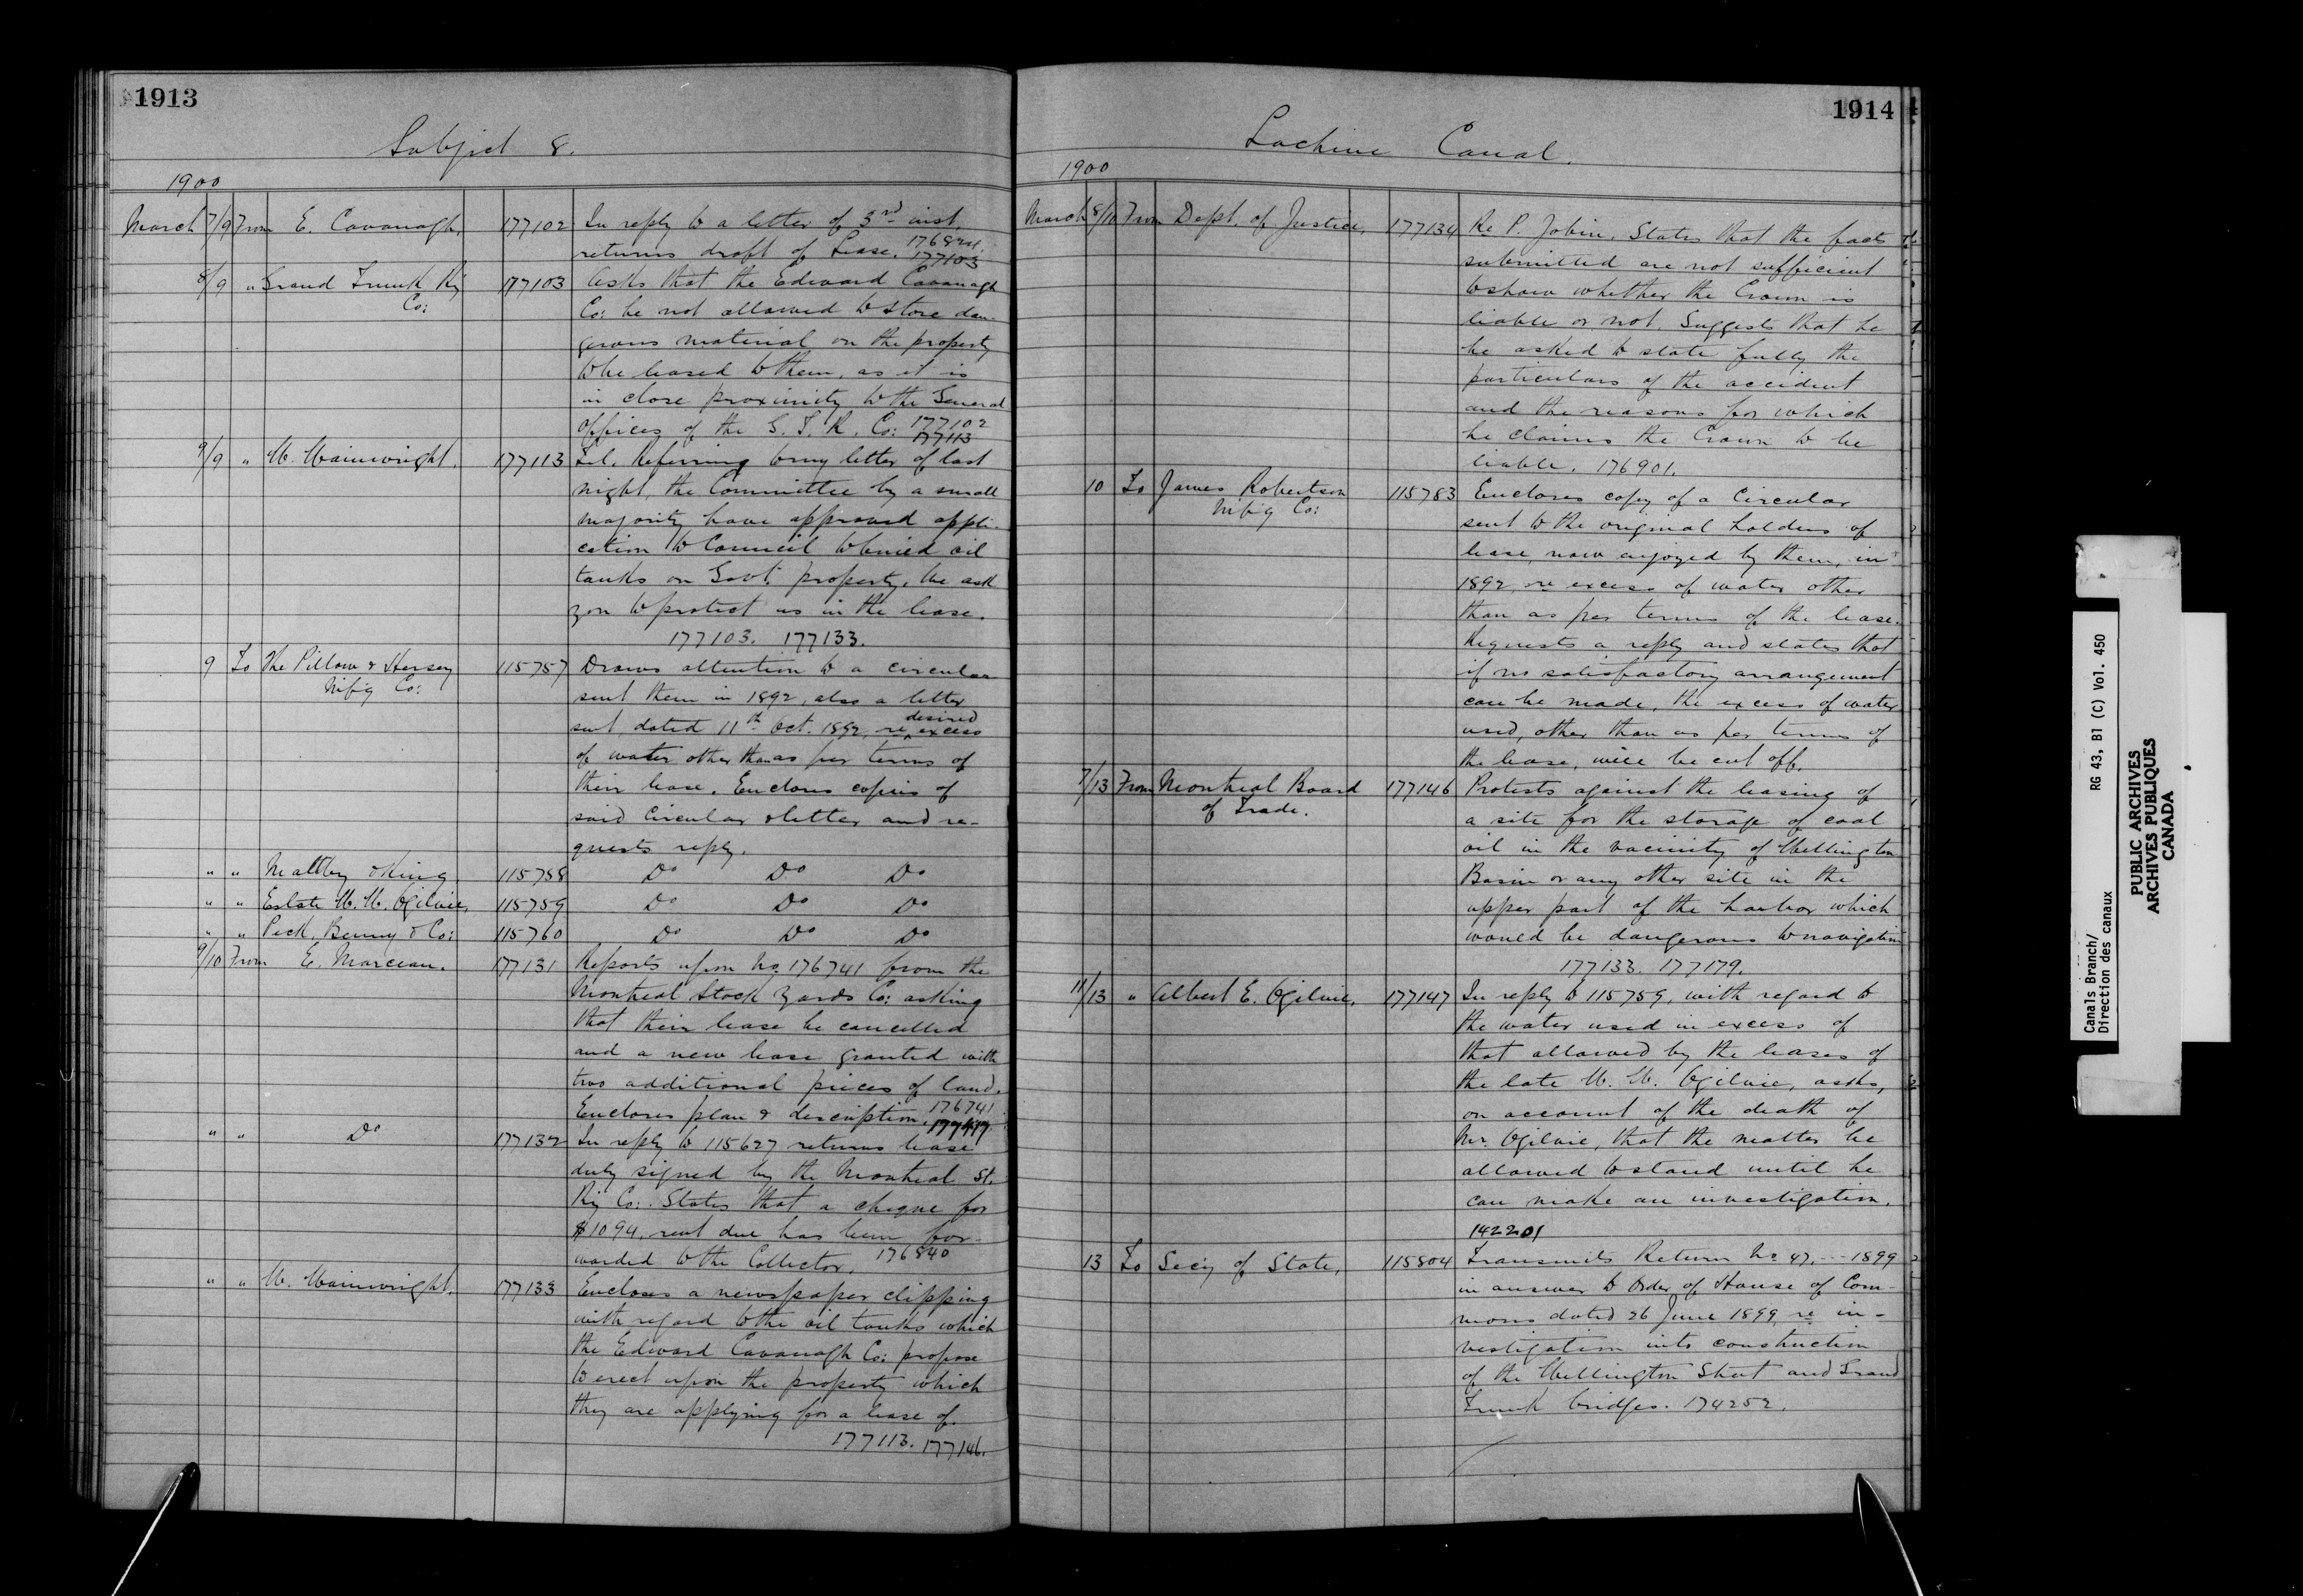 1913
Subject 8.
1900
March 7/9 From E. Cavanagh, 177102 In reply to a letter of 3rd inst.
returns draft of Lease. 176824.
177103
8/9 " Grand Trunk Ry 177103 Asks that the Edward Cavanagh
Co: Co: be not allowed to store dan-
gerous material on the property
to be leased to them, as it is
in close proximity to the General
Offices of the G. T. R. Co: 177102
177113
9/9 " W. Wainwright. 177113 Tel. Referring to my letter of last
night, the Committee by a small
majority have approved appli-
cation to Council to build oil
tanks on Govt. property. We ask
you to protect us in the lease.
177103. 177133.
9 To The Pillow & Hersey 115757 Draws attention to a circular
Mf'g Co: sent them in 1892, also a letter
desired
sent, dated 11th Oct. 1892, re excess
of water other than as per terms of
their lease. Encloses copies of
said Circular & letter and re-
quests reply.
" " Maltby & King 115758 Do Do Do
" " Estate W. W. Ogilvie, 115759 Do Do Do
" " Peck, Benny & Co: 115760 Do Do Do
9/10 From E. Marceau. 177131 Reports upon No. 176741 from the
Montreal Stock Yards Co: asking
that their lease be cancelled
and a new lease granted with
two additional pieces of land.
Encloses plan & description. 176741
" " Do 177132 In reply to 115627 returns lease
duly signed by the Montreal St.
Ry Co:. States that a cheque for
$1094, rent due has been for-
warded to the Collector. 176840
" " W. Wainwright. 177133 Encloses a newspaper clipping
with regard to the oil tanks which
the Edward Cavanagh Co: propose
to erect upon the property which
they are applying for a lease of.
177113. 177146.
1914
Lachine Canal.
1900
March 8/10 From Dept. of Justice, 177134 Re P. Jobin. States that the facts
submitted are not sufficient
to show whether the Crown is
liable or not. Suggests that he
be asked to state fully the
particulars of the accident
and the reasons for which
he claims the Crown to be
liable. 176901.
10 To James Robertson 115783 Encloses copy of a Circular
Mf'g Co: sent to the original holders of
lease, now enjoyed by them, in
1892, re excess of water other
than as per terms of the lease.
Requests a reply and states that
if no satisfactory arrangement
can be made, the excess of water
used, other than as per terms of
the lease, will be cut off.
7/13 From Montreal Board 177146 Protests against the leasing of
of Trade. a site for the storage of coal
oil in the vicinity of Wellington
Basin or any other site in the
upper part of the harbor which
would be dangerous to navigation
177133. 177179.
11/13 " Albert E. Ogilvie, 177147 In reply to 115759, with regard to
the water used in excess of
that allowed by the leases of
the late W. W. Ogilvie, asks,
on account of the death of
Mr. Ogilvie, that the matter be
allowed to stand until he
can make an investigation.
142201
13 To Secy of State, 115804 Transmits Return No. 47. --- 1899
in answer to Order of House of Com-
mons dated 26 June 1899, re in-
vestigation into construction
of the Wellington Street and Grand
Trunk bridges. 174252.
Canals Branch/
Direction des canaux
RG 43, B1 (C) Vol. 450
PUBLIC ARCHIVES
ARCHIVES PUBLIQUES
CANADA